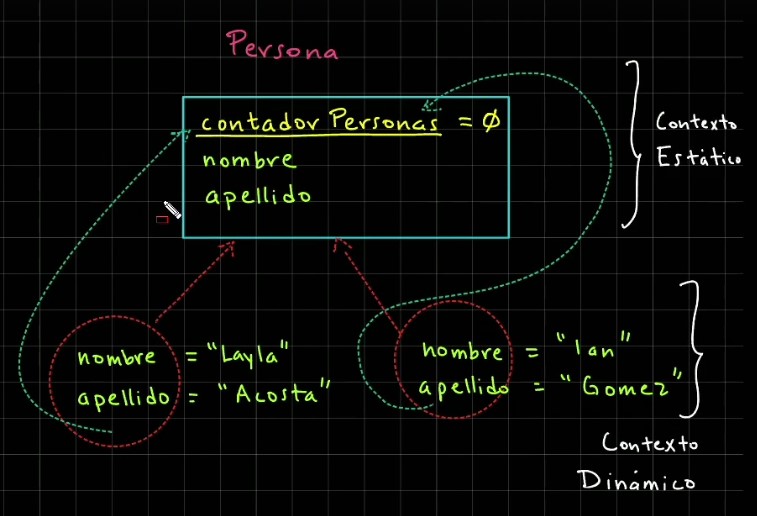 Persona
contador Personas = ∅
nombre
apellido
Contexto
Estático
nombre = "Layla"
apellido = "Acosta"
nombre = "Ian"
apellido = "Gomez"
Contexto
Dinámico